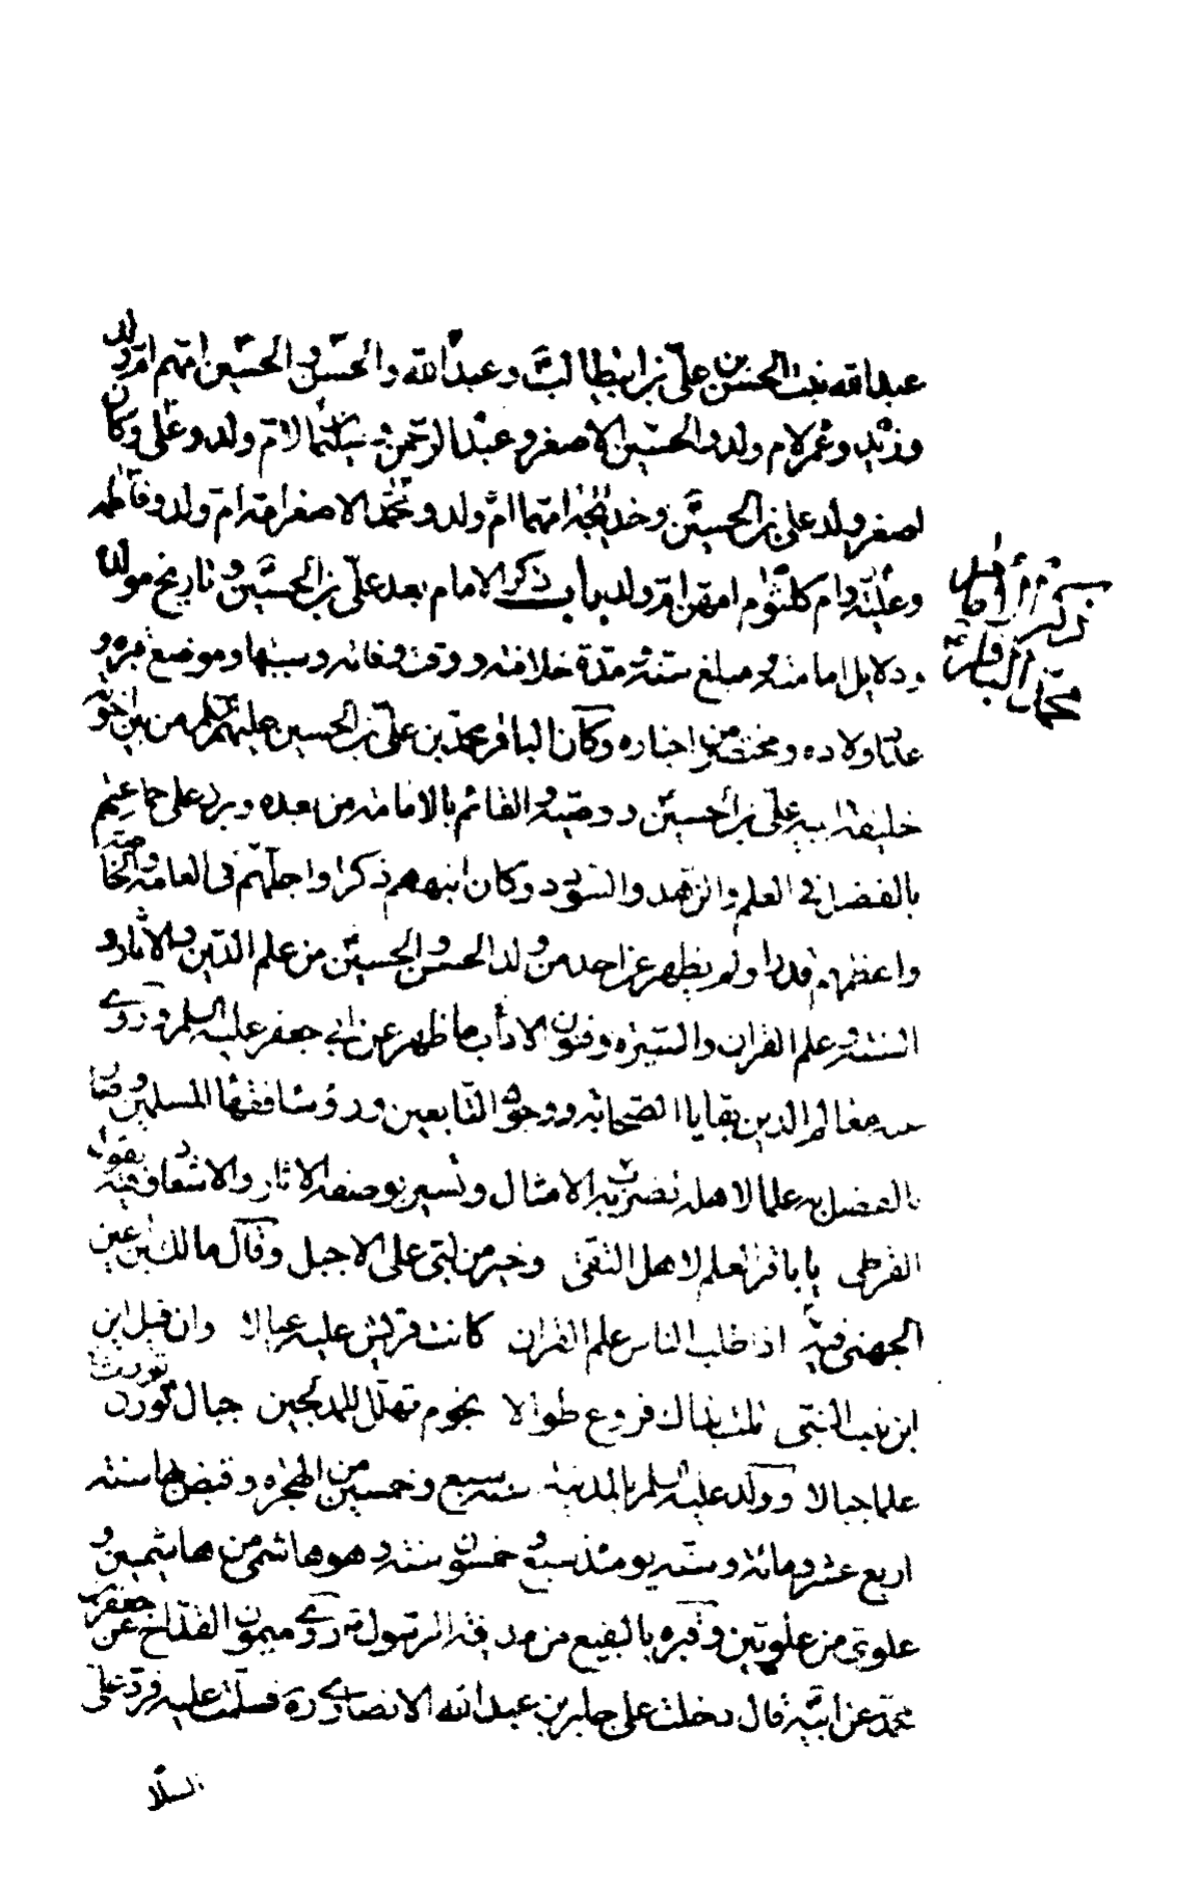 عبدالله بنت الحسن بن علىّ بن ابيطالب وعبدالله والحسن والحسين امّهم امّ ولد
وزيد وعمر لام ولد والحسين الاصغر وعبدالرّحمن وسليمان لامّ ولد وعلى وكان
اصغر ولد على بن الحسين وخديجة امّهما امّ ولد ومحمّد الاصغر امّه امّ ولد وفاطمه
وعليّه وام كلثوم امهن امّ ولد باب ذكر الامام بعد علىّ بن الحسين وتاريخ مولده
ودلايل امامته ومبلغ سنّه ومدّة خلافته ووقت وفاته وسببها وموضع قبره و
عدد اولاده ومختصر من اخباره وكان الباقر محمّد بن علىّ بن الحسين عليهم السلم من بين اخوته
خليفة ابيه علىّ بن الحسين ووصيّه والقائم بالامامة من بعده وبرز على جماعتهم
بالفضل فى العلم والزّهد والسّودد وكان انبههم ذكرا واجلّهم فى العامّة والخاصّة
واعظمهم قدرا ولم يظهر عن احد من ولد الحسن والحسين من علم الدّين والاثار و
السّنّة وعلم القران والسّيره وفنون الاداب ما ظهر عن ابى جعفر عليه السلم وروى
عنه معالم الدين بقايا الصّحابه ووجوه التّابعين ورؤسا فقها المسلمين وصار
بالفضل به علما لاهله تضرب به الامثال وتسير بوصفه الاثار والاشعار وفيه يقول
القرظى يا باقر العلم لاهل التّقى وخير من لبّى على الاجبل وقال مالك بن اعين
الجهنى فيه اذا طلب الناس علم القران كانت قريش عليه عيالا وان قيل اين
ابن بنت النّبى نلت بذاك فروع طوالا نجوم تهلّل للمدلجين جبال تورث
علما جبالا وولد عليه السلم بالمدينة سنه سبع وخمسين من الهجره وقبض بها سنه
اربع عشر ومائة وسنّه يومئذ سبع وخمسون سنه وهو هاشمى من هاشميين و
علوىّ من علويّين وقبره بالبقيع من مدينة الرّسول ص روى ميمون القدّاح عن جعفر بن
محمّد عن ابيه قال دخلت على جابر بن عبدالله الانصارى ره فسلّمت عليه فردّ علىّ
السّلا
ذكر
محمّد الباقر